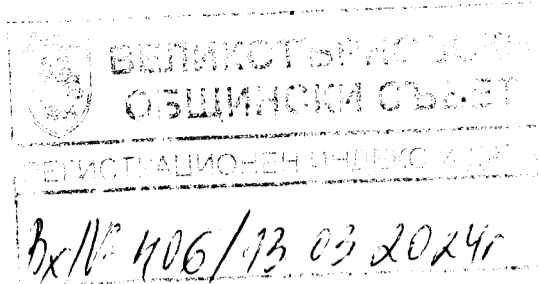 ВЕЛИКОТЪРНОВСКИ
ОБЩИНСКИ СЪВЕТ
РЕГИСТРАЦИОНЕН ИНДЕКС И
Вх/№ 406/13 03 2024г